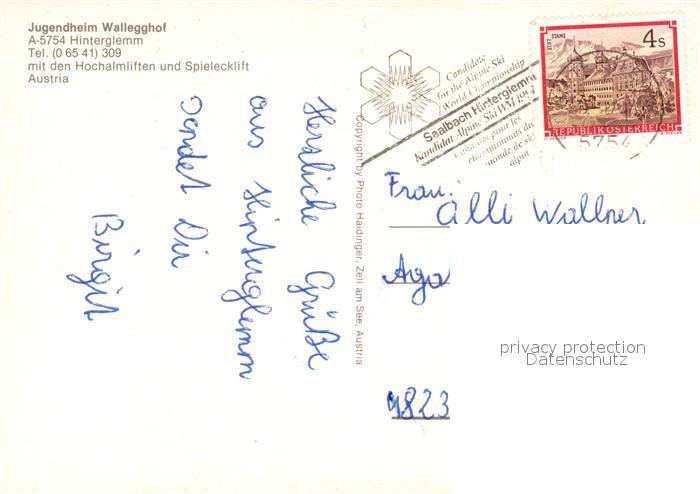 Jugendheim Wallegghof
A-5754 Hinterglemm
Tel. (0 65 41) 309
mit den Hochalmliften und Spielecklift
Austria
Herzliche Grüße
aus Hinterglemm
sendet Dir
Birgit
Copyright by Photo Haidinger, Zell am See, Austria
Candidate
for the Alpine Ski
World Championship
Saalbach Hinterglemm
Kandidat Alpine Ski WM
Candidat pour les
championnats du
monde de ski
alpin
STIFT STAMS
4 S
REPUBLIK ÖSTERREICH
5754
Frau:
Alli Wallner
9823
privacy protection
Datenschutz